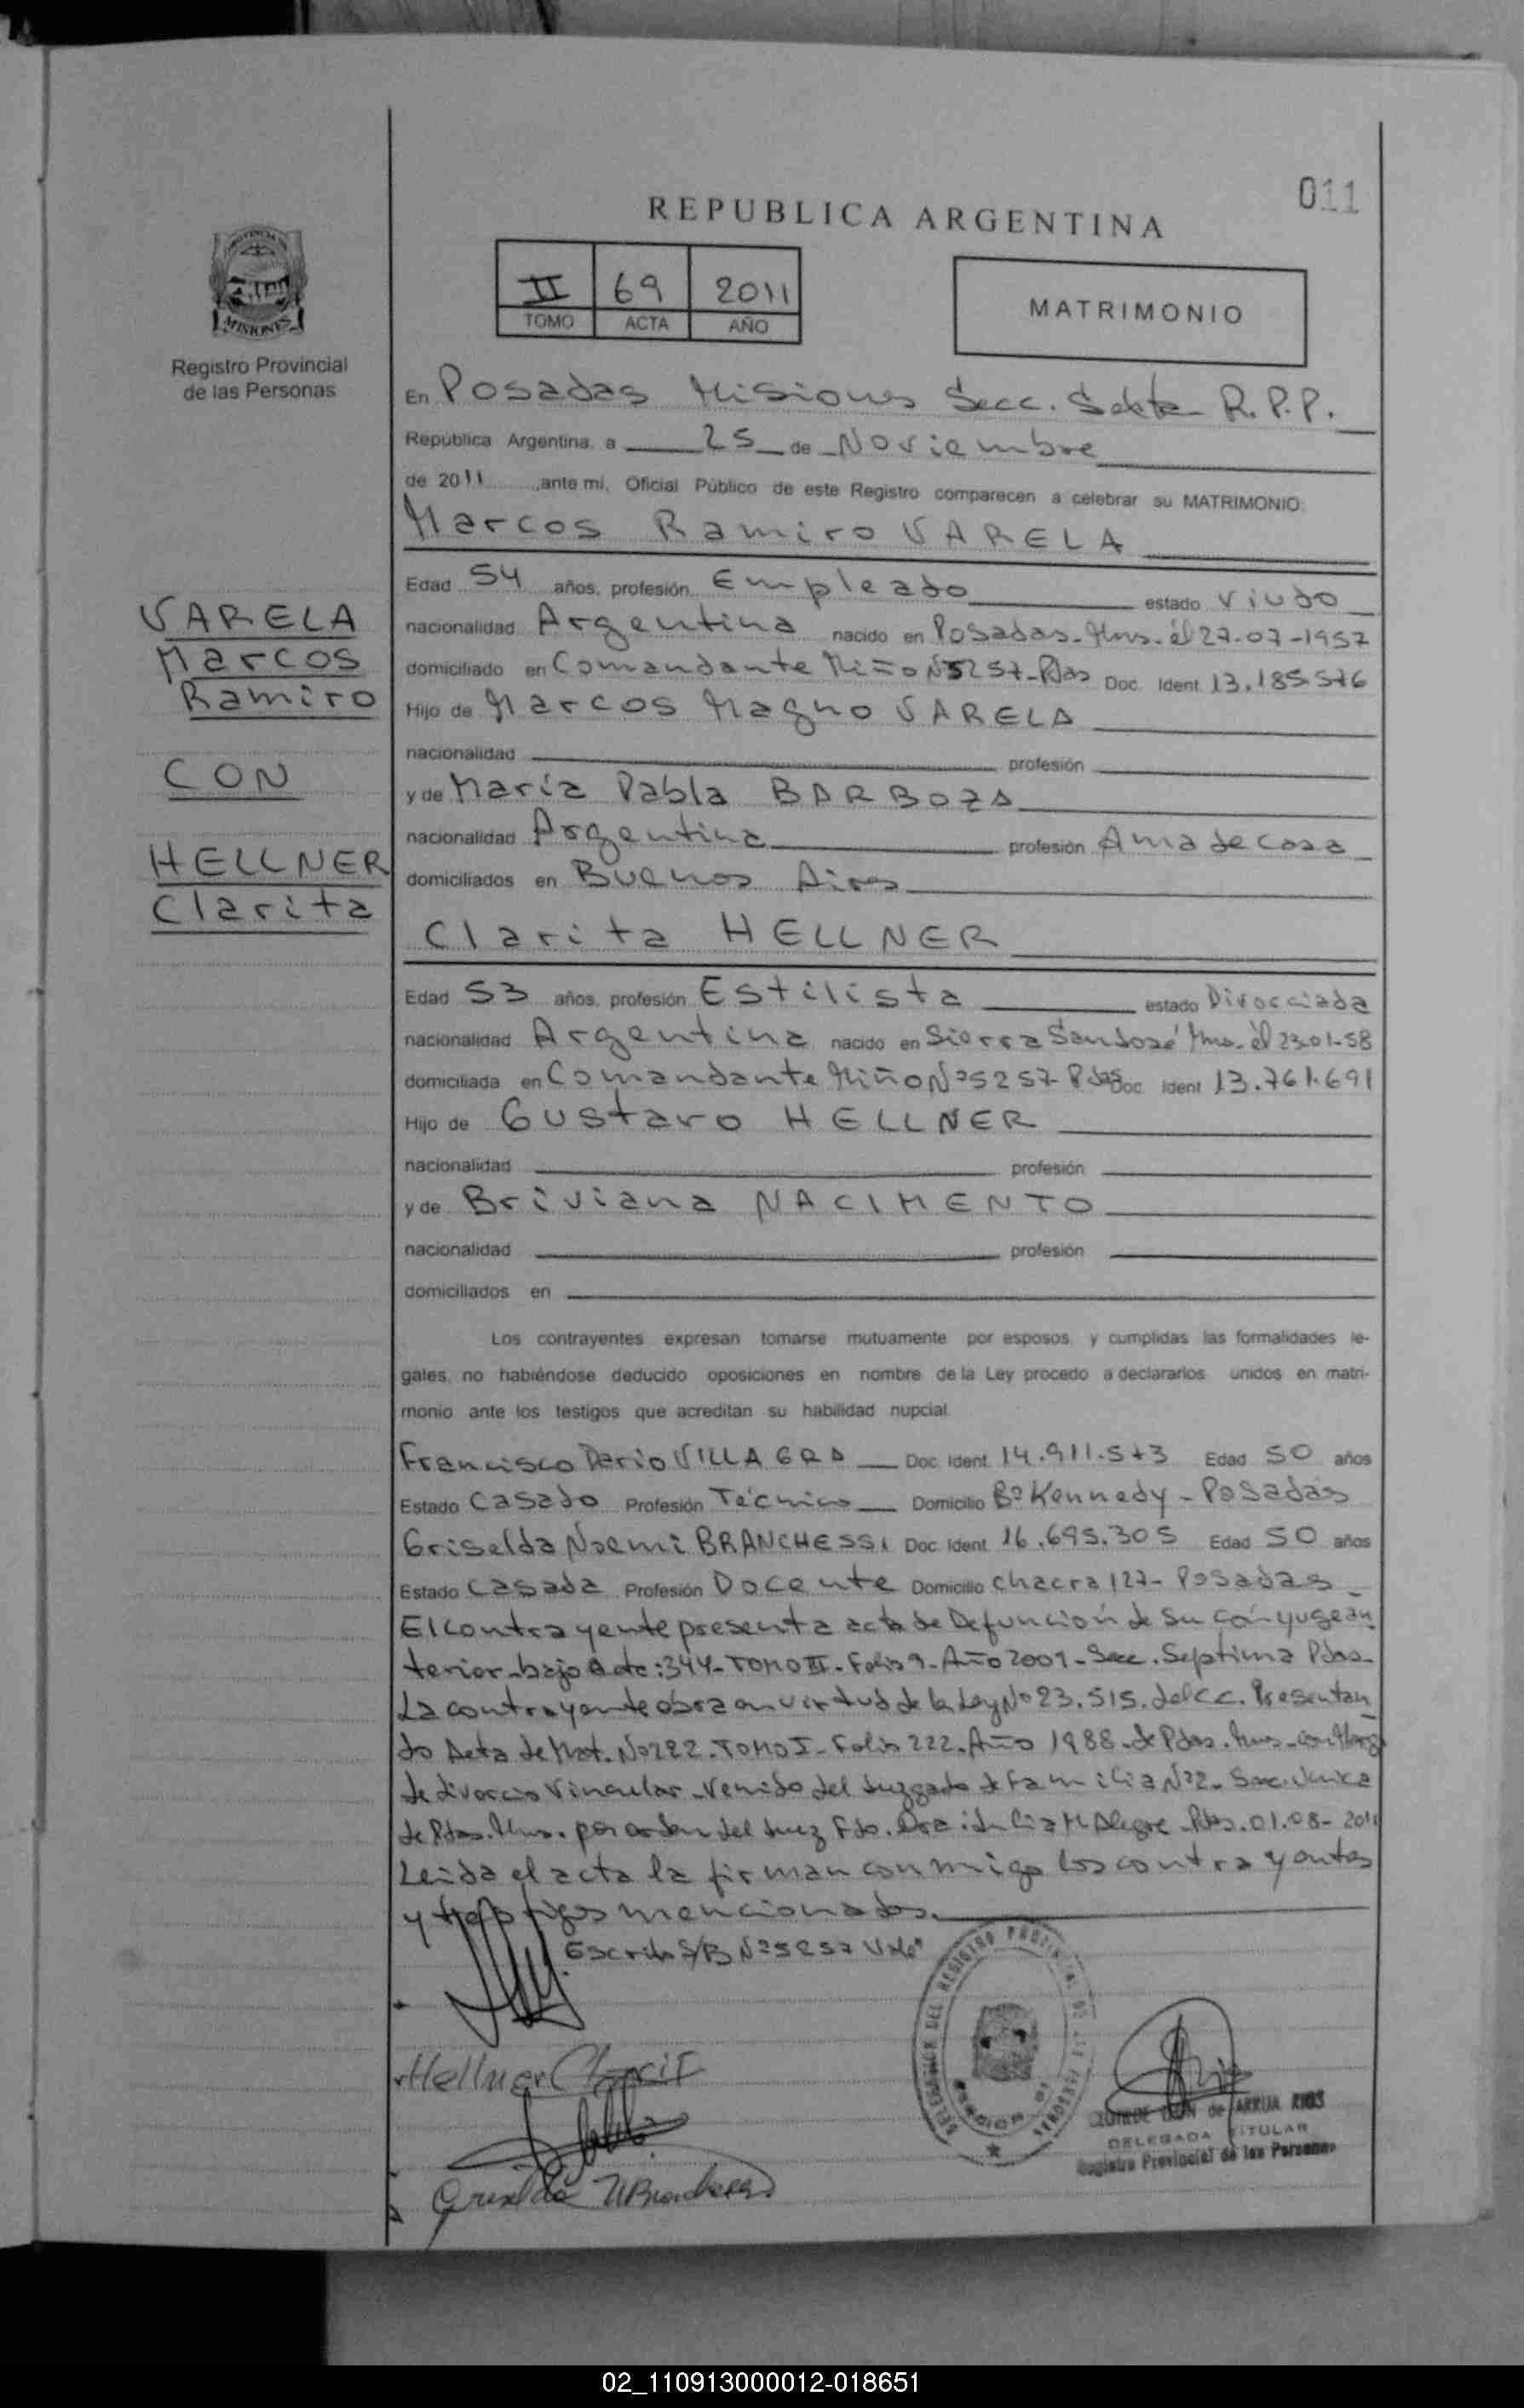 011
REPUBLICA ARGENTINA
II 69 2011
TOMO ACTA AÑO
MATRIMONIO
PROVINCIA DE
MISIONES
Registro Provincial
de las Personas
En Posadas Misiones Secc. Sexta R.P.P.
República Argentina, a 25 de Noviembre
de 2011 ,ante mí, Oficial Público de este Registro comparecen a celebrar su MATRIMONIO:
Marcos Ramiro VARELA
Edad 54 años, profesión Empleado estado Viudo
nacionalidad Argentina nacido en Posadas-Mns. el 27-07-1957
domiciliado en Comandante Miño Nº5257-Pdas Doc. Ident. 13.185.576
Hijo de Marcos Magno VARELA
nacionalidad profesión
y de María Pabla BARBOZA
nacionalidad Argentina profesión Ama de casa
domiciliados en Buenos Aires
Clarita HELLNER
Edad 53 años, profesión Estilista estado Divorciada
nacionalidad Argentina nacido en Sierra San José Mns. el 23-01-58
domiciliada en Comandante Miño Nº5257-Pdas Doc. Ident. 13.761.691
Hijo de Gustavo HELLNER
nacionalidad profesión
y de Briviana NACIMENTO
nacionalidad profesión
domiciliados en
VARELA
Marcos
Ramiro
CON
HELLNER
Clarita
Los contrayentes expresan tomarse mutuamente por esposos, y cumplidas las formalidades le-
gales, no habiéndose deducido oposiciones en nombre de la Ley procedo a declararlos unidos en matri-
monio ante los testigos que acreditan su habilidad nupcial.
Francisco Dario VILLAGRA Doc. Ident. 14.911.573 Edad 50 años
Estado Casado Profesión Técnico Domicilio Bº Kennedy - Posadas
Griselda Noemi BRANCHESSI Doc. Ident. 16.695.305 Edad 50 años
Estado Casada Profesión Docente Domicilio chacra 127- Posadas
El contrayente presenta acta de Defunción de su cónyuge an
terior-bajo Acta:344-TOMO III-Folio 9-Año 2009-Secc. Septima Pdas-
La contrayente obra en virtud de la Ley Nº 23.515. del C.C. Presentan
do Acta de Mat. Nº222.TOMO I-Folio 222.Año 1988-de Pdas. Mns-con Marg
de divorcio Vincular-venido del Juzgado de Familia Nº2-Secc. Unica
de Pdas. Mns. por orden del Juez Fdo. Dra: Julia M Alegre-Pdas.01.08-2011
Leida el acta la firman conmigo los contrayentes
y testigos mencionados.
Escrito S/B Nº5257 Vale"
Hellner Clarit
DELEGADA TITULAR
Registro Provincial de las Personas
02_110913000012-018651